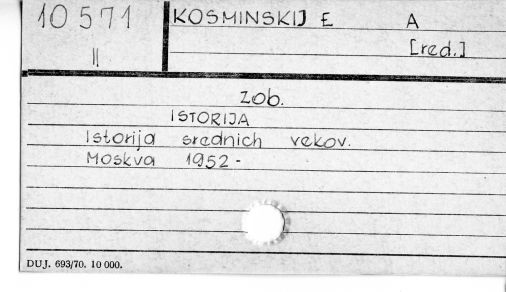 10 571
KOSMINSKIJ E A
II
[red.]
zob.
ISTORIJA
Istorija srednich vekov.
Moskva 1952-
DUJ. 693/70. 10 000.